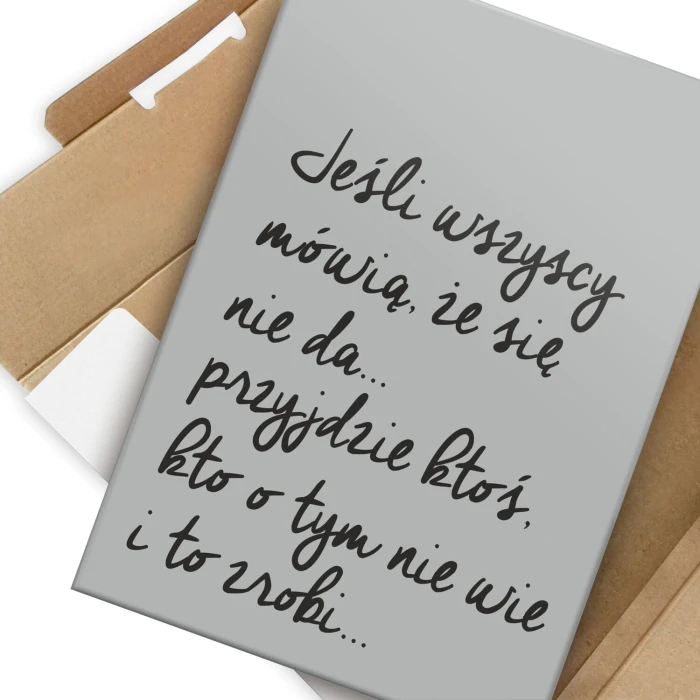 Jeśli wszyscy
mówią, że się
nie da...
przyjdzie ktoś,
kto o tym nie wie
i to zrobi...